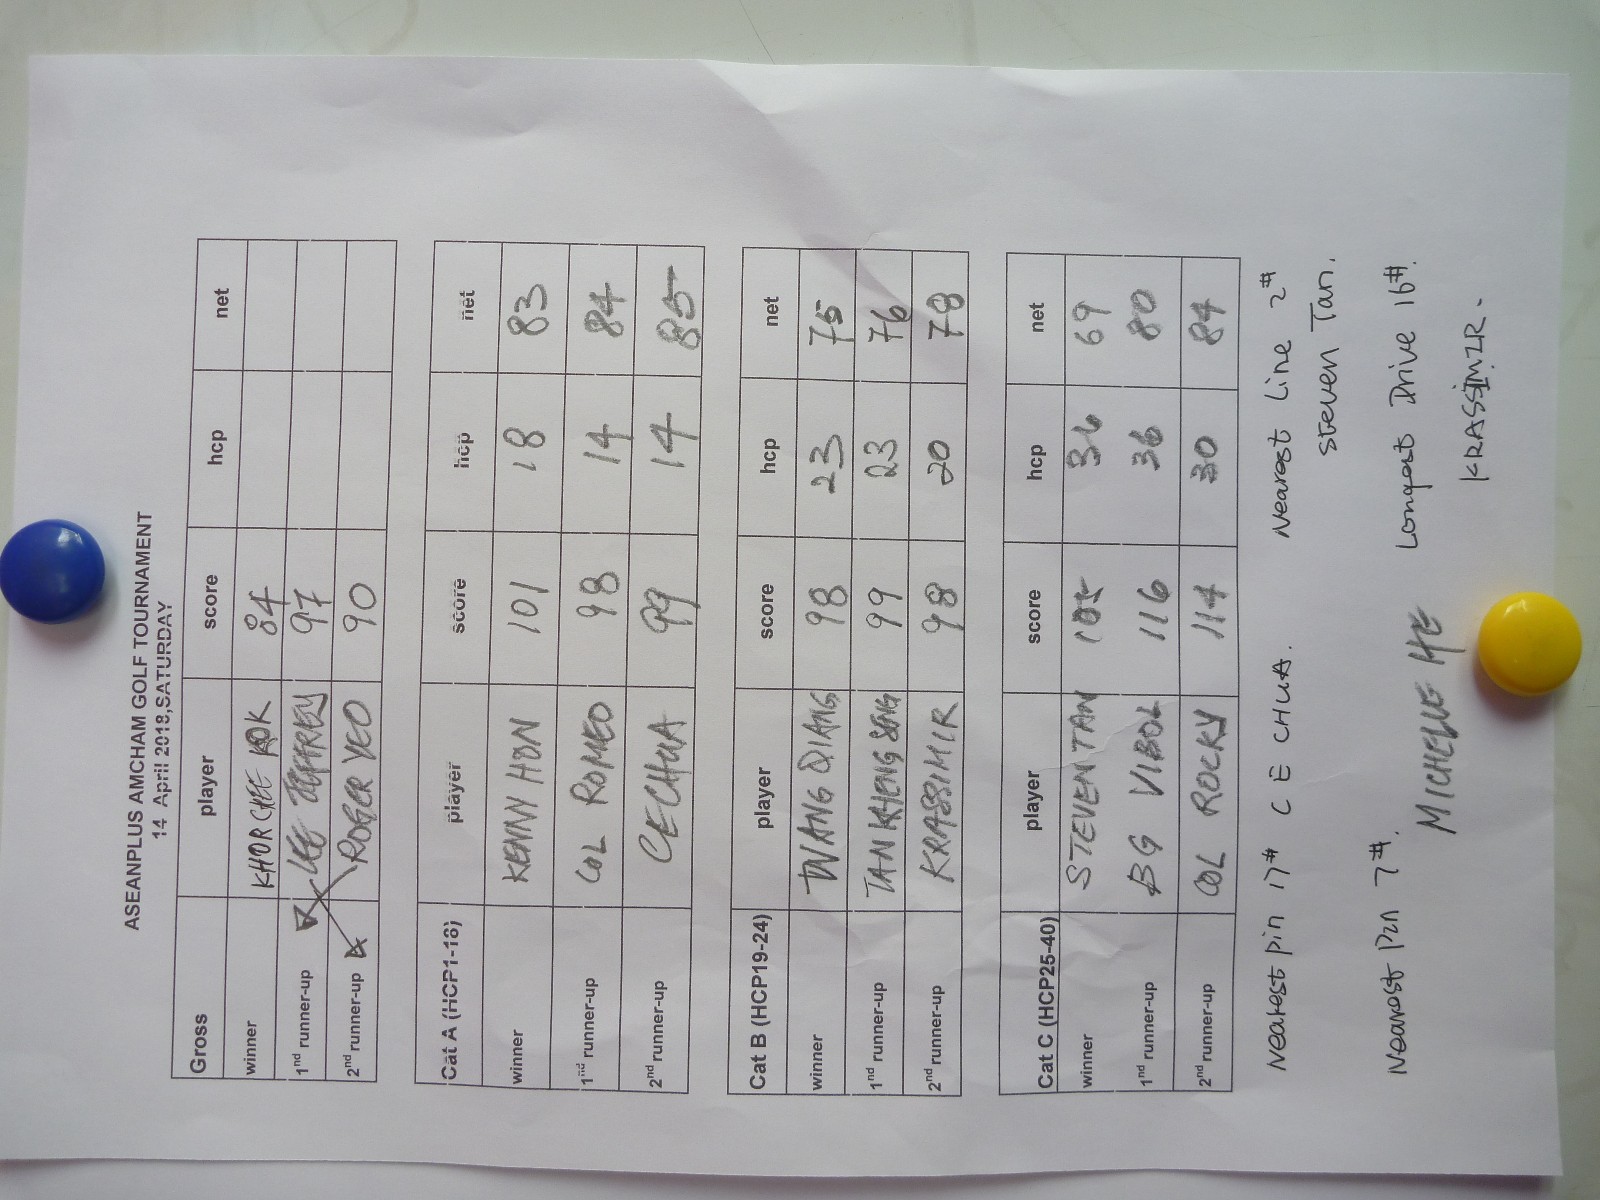 ASEANPLUS AMCHAM GOLF TOURNAMENT
14 April 2018,SATURDAY
Gross player score hcp net
winner KHOR CHEE KOK 84
1nd runner-up LEE JEFFREY 97
2nd runner-up ROGER YEO 90
Cat A (HCP1-18) player score hcp net
winner KENN HON 101 18 83
1nd runner-up COL ROMEO 98 14 84
2nd runner-up CECHUA 99 14 85
Cat B (HCP19-24) player score hcp net
winner WANG QIANG 98 23 75
1nd runner-up TAN KHENG SENG 99 23 76
2nd runner-up KRASSIMIR 98 20 78
Cat C (HCP25-40) player score hcp net
winner STEVEN TAN 105 36 69
1nd runner-up BG VIBOL 116 36 80
2nd runner-up COL ROCKY 114 30 84
Nearest pin 17# C E CHUA. Nearest Line 2#
Steven Tan.
Nearest Pin 7#. Longest Drive 16#.
MICHELLE HE KRASSIMIR.